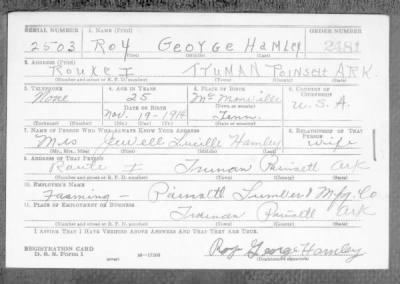 SERIAL NUMBER 1. NAME (Print) ORDER NUMBER
2503 ROY GEORGE HAMLEY 2481
(First) (Middle) (Last)
2. ADDRESS (Print)
ROUTE I TRUMAN POINSETT ARK.
(Number and street or R. F. D. number) (Town) (County) (State)
3. TELEPHONE 4. AGE IN YEARS 5. PLACE OF BIRTH 6. COUNTRY OF CITIZENSHIP
None 25 U.S.A.
DATE OF BIRTH (Town or county)
Nov. 19-1914 Tenn.
(Mo.) (Day) (Yr.) (State or country)
7. NAME OF PERSON WHO WILL ALWAYS KNOW YOUR ADDRESS 8. RELATIONSHIP OF THAT PERSON
Mrs Jewell Lucille Hamley wife
(Mr., Mrs., Miss) (First) (Middle) (Last)
9. ADDRESS OF THAT PERSON
Route I Truman Poinsett Ark
(Number and street or R. F. D. number) (Town) (County) (State)
10. EMPLOYER'S NAME
Farming - Poinsett Lumber & Mfg. Co
11. PLACE OF EMPLOYMENT OR BUSINESS
Truman Poinsett Ark
(Number and street or R. F. D. number) (Town) (County) (State)
I AFFIRM THAT I HAVE VERIFIED ABOVE ANSWERS AND THAT THEY ARE TRUE.
REGISTRATION CARD
D. S. S. Form 1 Roy George Hamley
(Registrant's signature)